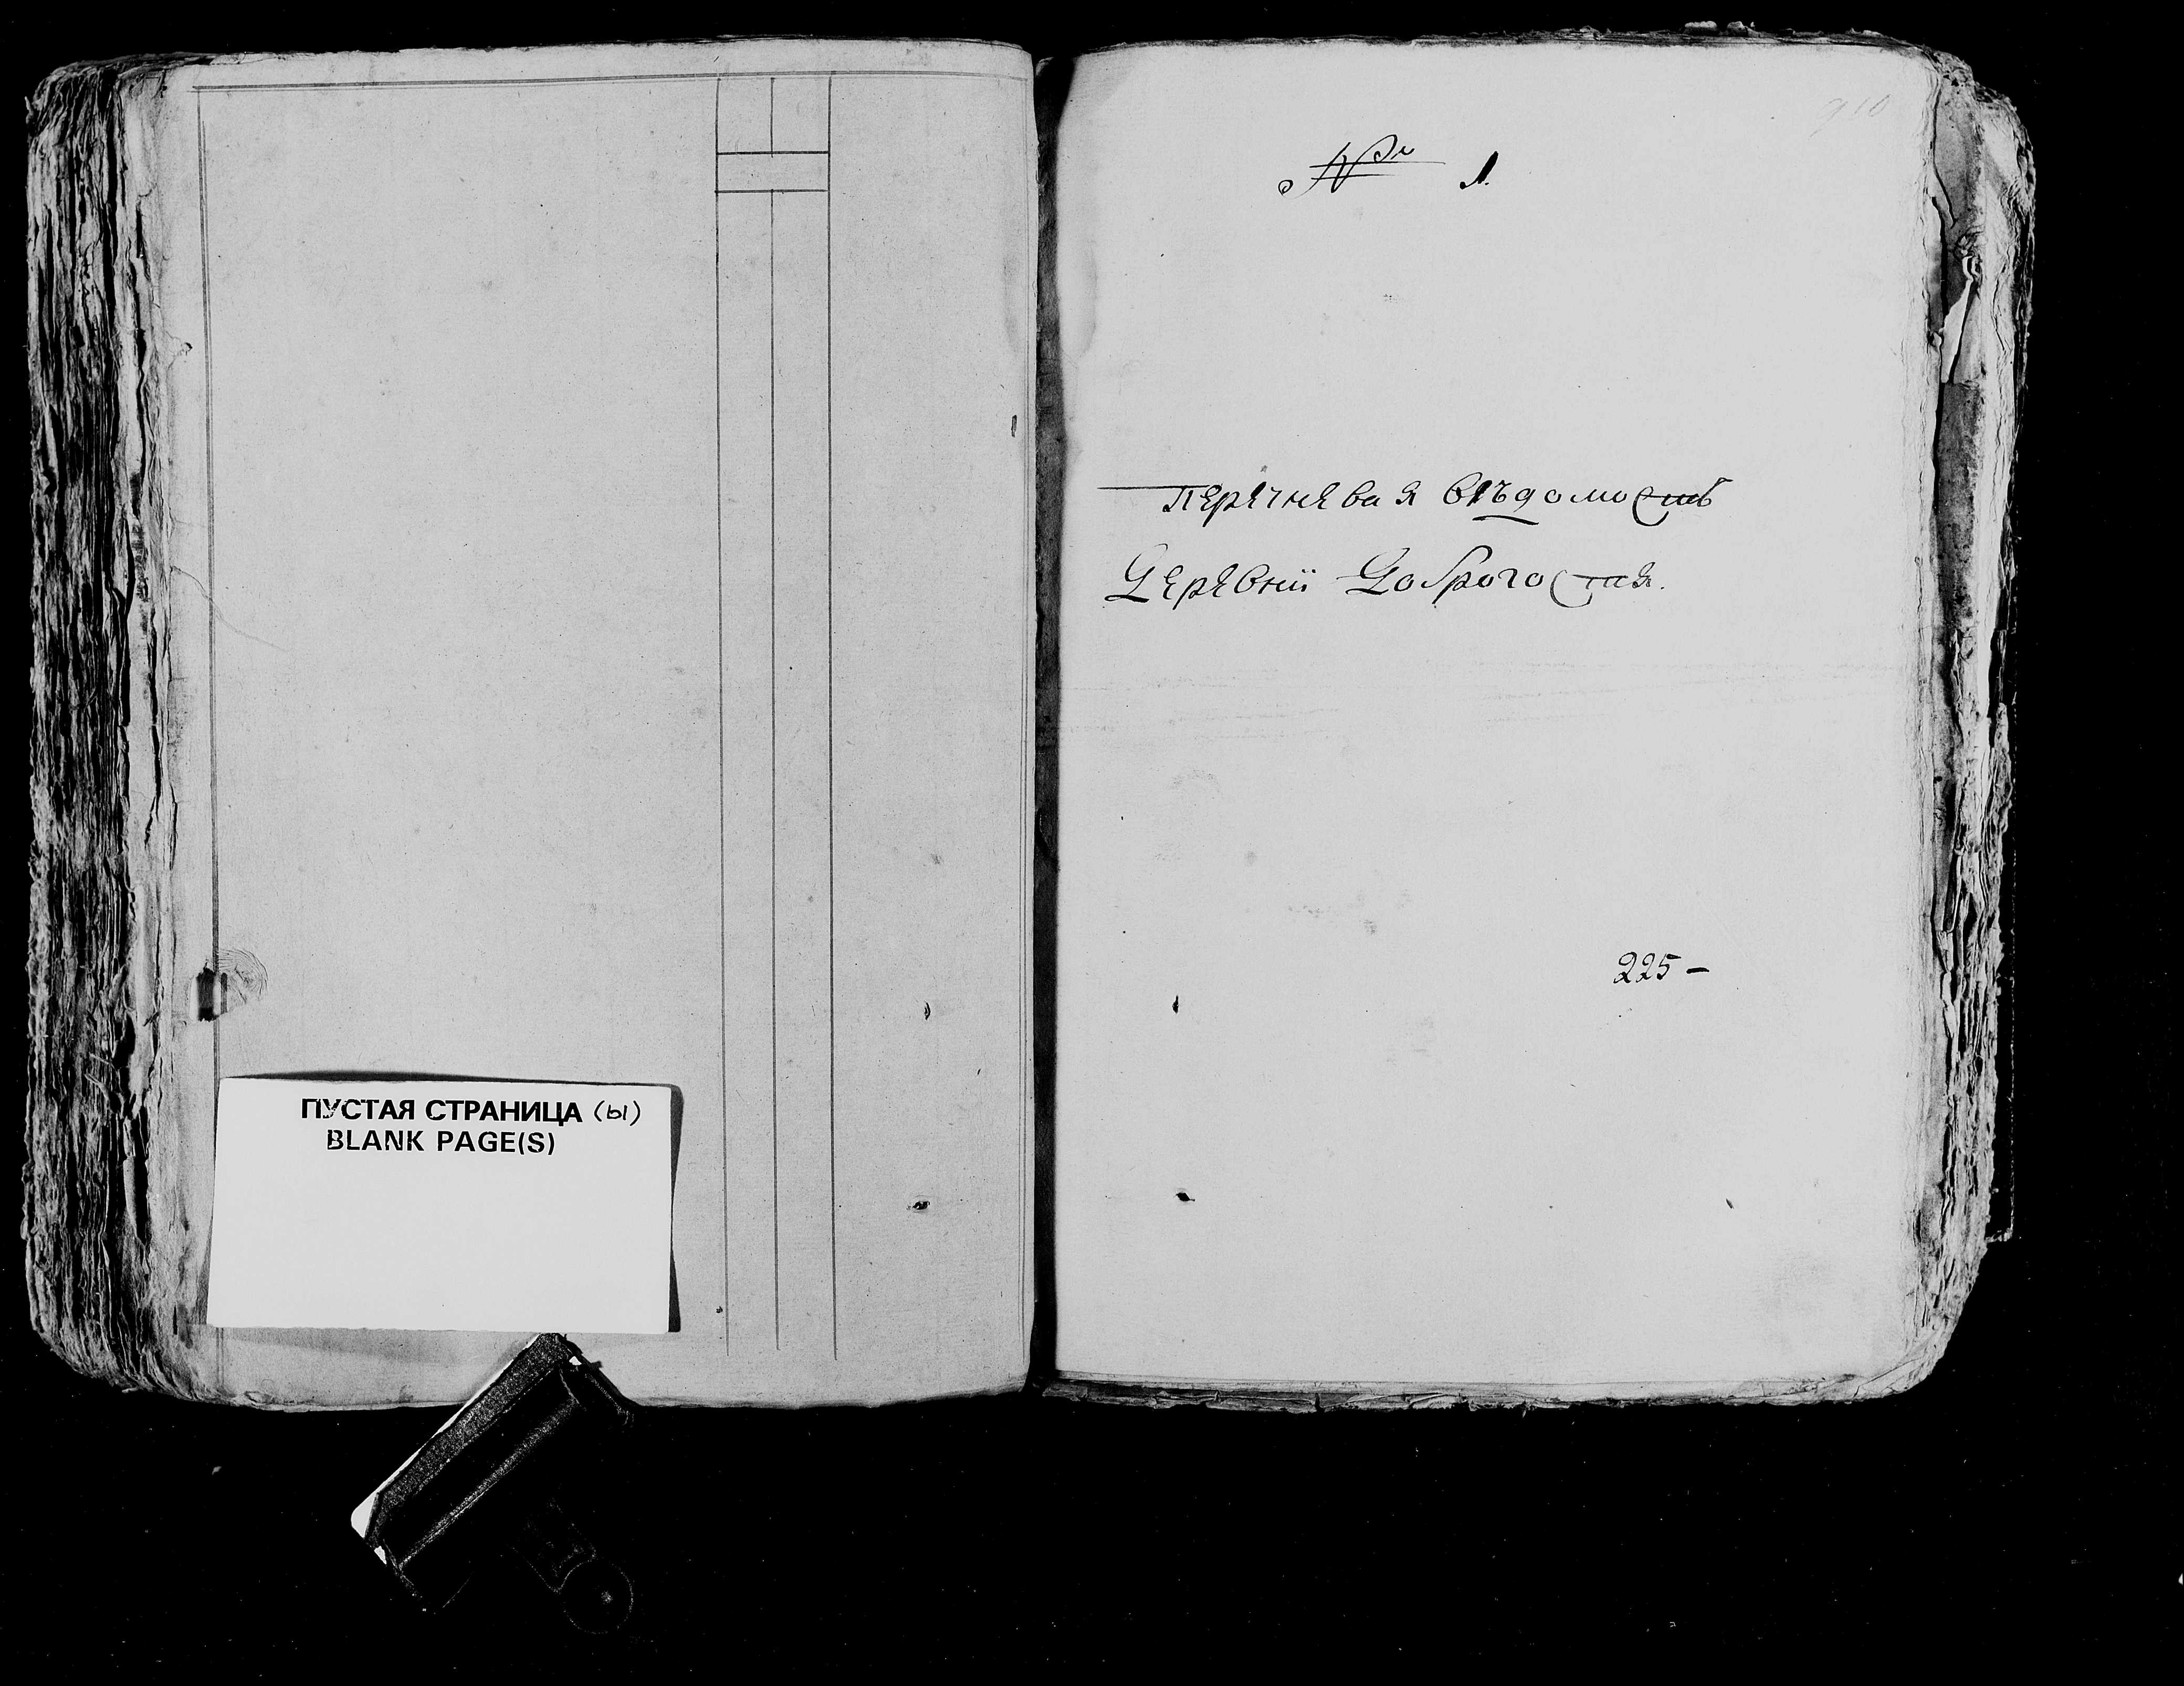 ПУСТАЯ СТРАНИЦА (ы)
BLANK PAGE(S)
№ 1.
перечневая вѣдомость
Деревнѣ Доброгостя.
225 –